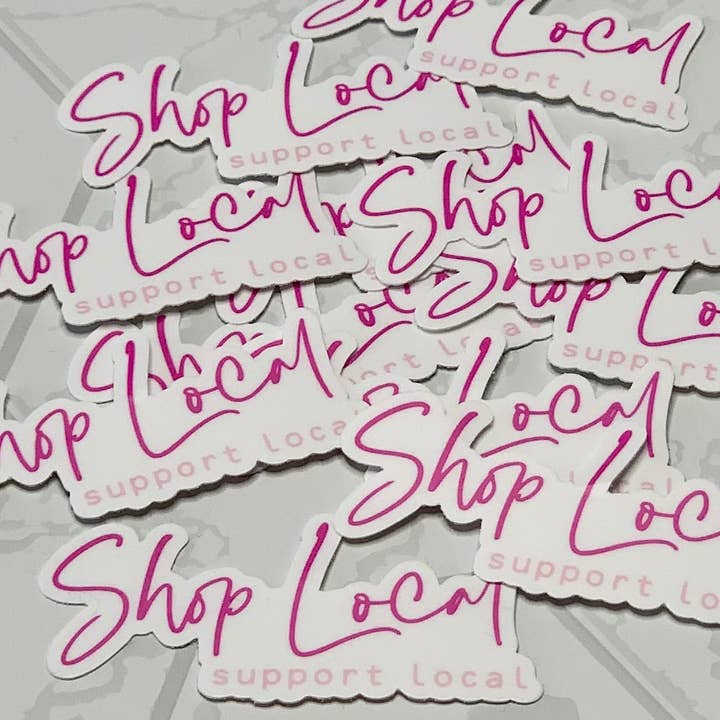 Shop Local
support local
Shop Local
support local
hop Local
support local
Shop Loc
support l
cal
Shop Lo
support
Sho
oc
rt l
hop Local
support loca
Local
Shop Loc
support lo
Shop Local
support local